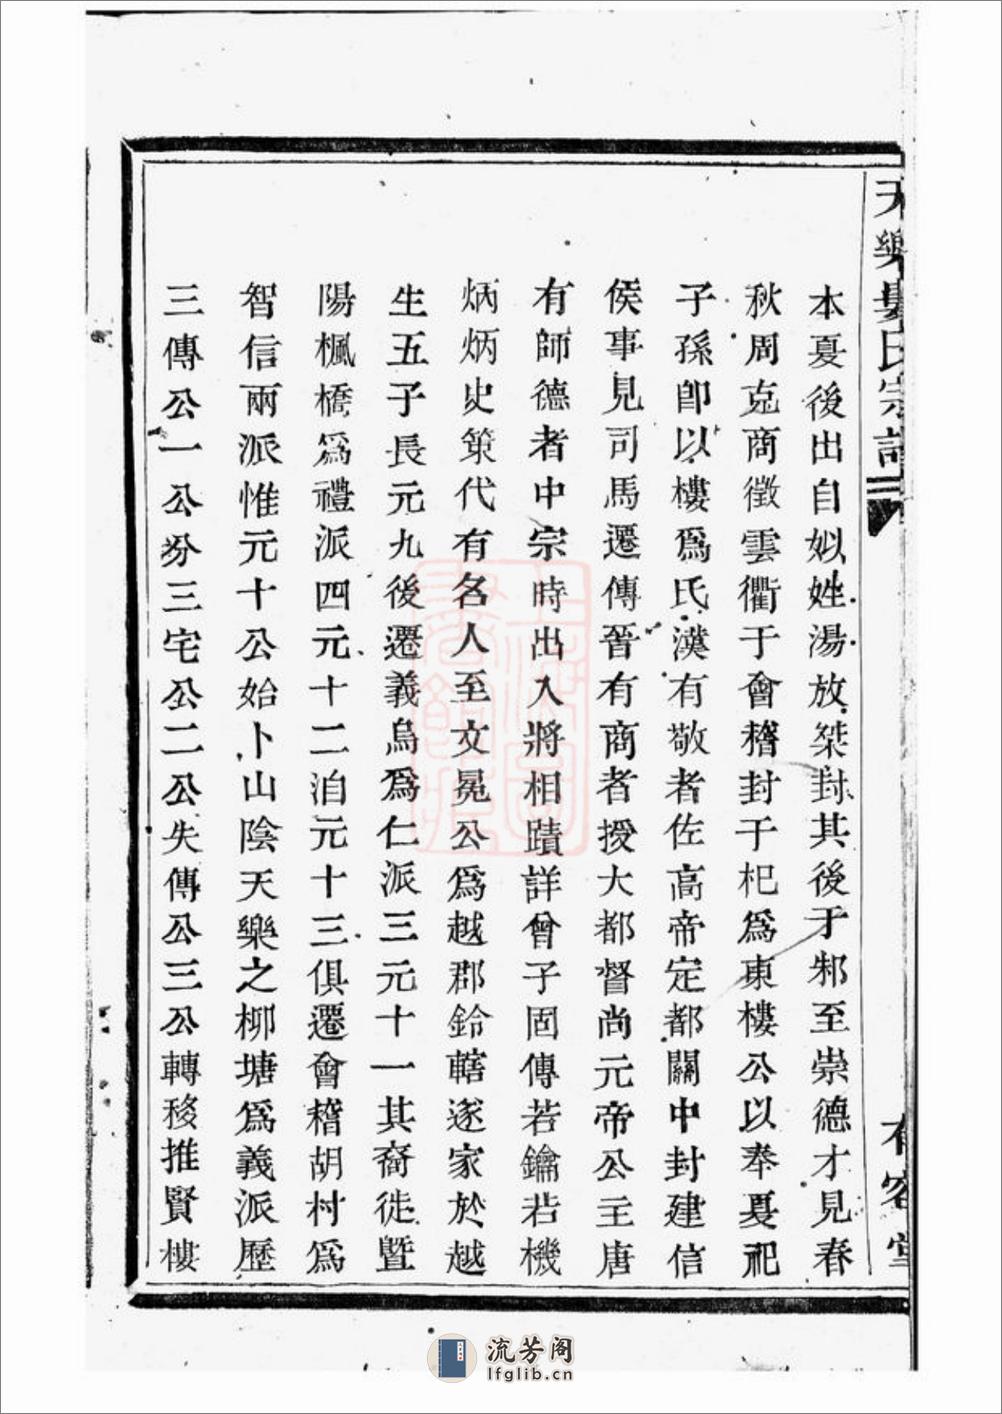 天樂樓氏宗譜
有容堂
本夏後出自姒姓湯放桀封其後于邾至崇德才見春
秋周克商徵雲衢于會稽封于杞為東樓公以奉夏祀
子孫卽以樓爲氏漢有敬者佐高帝定都關中封建信
侯事見司馬遷傳晉有商者授大都督尚元帝公主唐
有師德者中宗時出入將相蹟詳曾子固傳若鑰若機
炳炳史策代有名人至文冕公爲越郡鈐轄遂家於越
生五子長元九後遷義烏爲仁派三元十一其裔徙暨
陽楓橋爲禮派四元十二洎元十三俱遷會稽胡村爲
智信兩派惟元十公始卜山陰天樂之柳塘爲義派歷
三傳公一公分三宅公二公失傳公三公轉移推賢樓
上海圖
書館藏
流芳阁
lfglib.cn